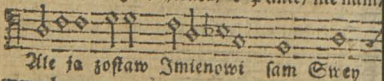 Ale ja zostaw Imienowi sam Swey